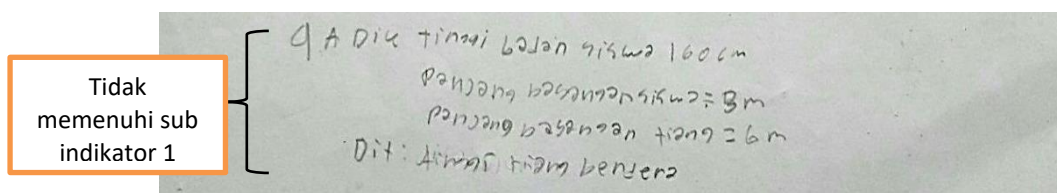 Tidak
memenuhi sub
indikator 1
9 A Dik tinggi badan siswa 160 cm
panjang bayangan siswa = 3 m
panjang bayangan tiang = 6 m
Dit : tinggi tiang bendera